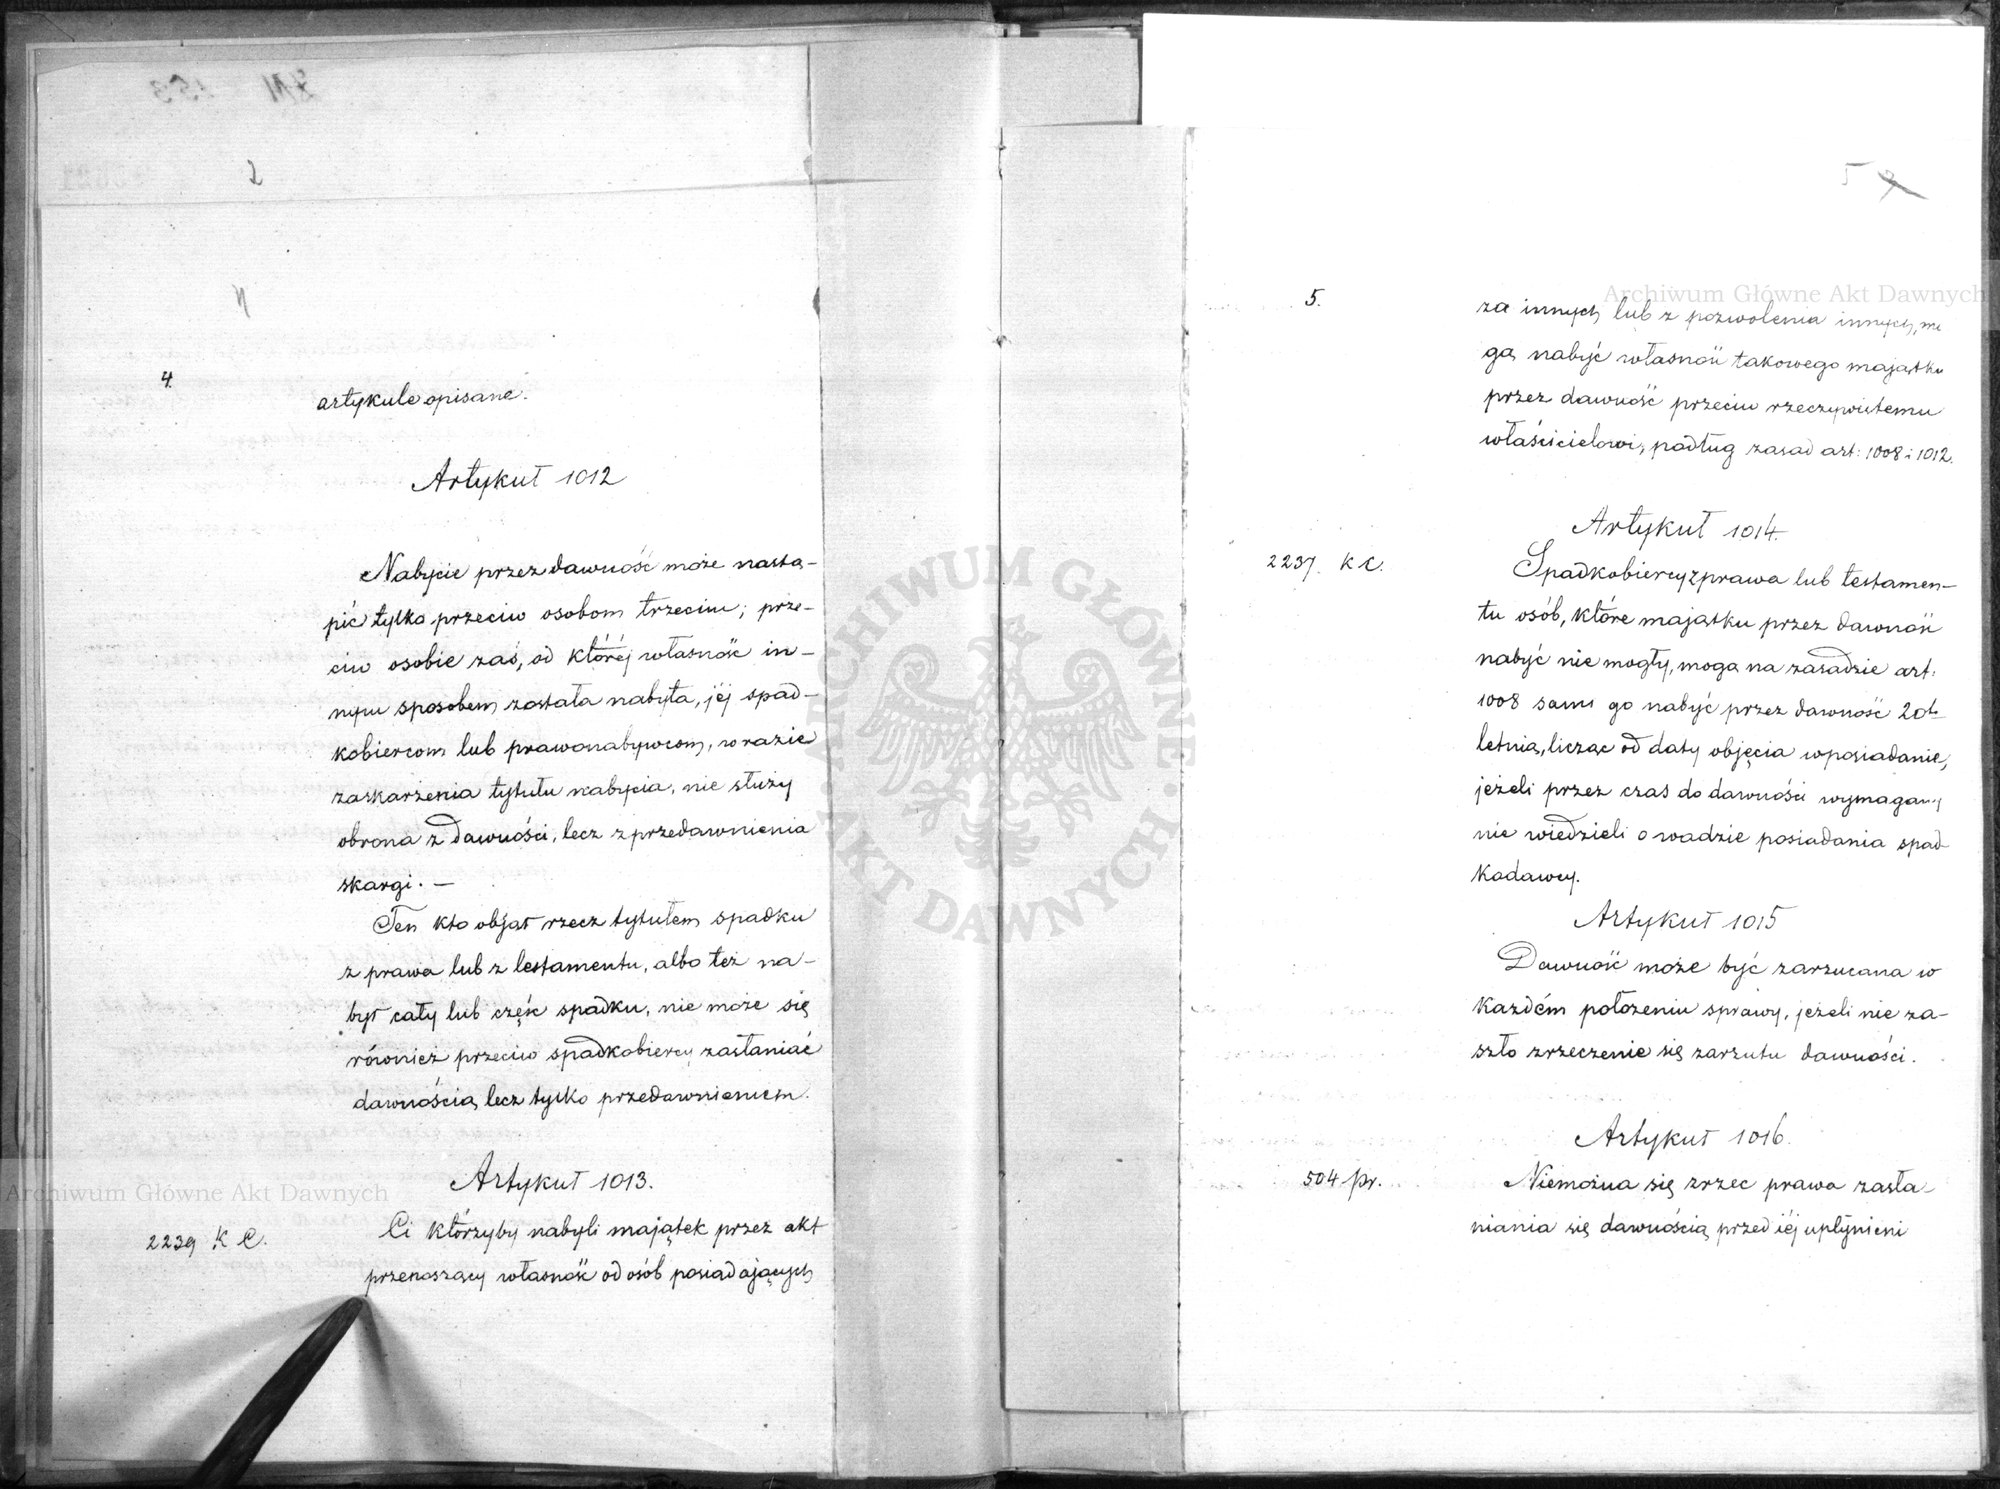 2
4.
artykule opisane.
Artykuł 1012
Nabycie przez dawność może nastą-
pić tylko przeciw osobom trzecim; prze-
ciw osobie zaś, od któréj własność in-
nym sposobem została nabyta, jéj spad-
kobiercom lub prawonabywcom, w razie
zaskarżenia tytułu nabycia, nie służy
obrona z dawności, lecz z przedawnienia
skargi. —
Ten kto objął rzecz tytułem spadku
z prawa lub z testamentu, albo też na-
był cały lub część spadku, nie może się
również przeciw spadkobiercy zasłaniać
dawnością, lecz tylko przedawnieniem.
Artykuł 1013.
2239 K C.
Ci którzyby nabyli majątek przez akt
przenoszący własność od osób posiadających
5
5.
za innych lub z pozwolenia innych, mo
gą nabyć własność takowego majątku
przez dawność przeciw rzeczywistemu
właścicielowi, podług zasad art: 1008 i 1012.
Artykuł 1014.
2237. K C.
Spadkobiercy z prawa lub testamen-
tu osób, które majątku przez dawność
nabyć nie mogły, mogą na zasadzie art:
1008 sami go nabyć przez dawność 20to
letnią, licząc od daty objęcia w posiadanie,
jeżeli przez czas do dawności wymagany
nie wiedzieli o wadzie posiadania spad-
kodawcy.
Artykuł 1015
Dawność może być zarzucana w
każdém położeniu sprawy, jeżeli nie za-
szło zrzeczenie się zarzutu dawności.
Artykuł 1016.
504 pr.
Niemożna się zrzec prawa zasła-
niania się dawnością przed jéj upłynieni
Archiwum Główne Akt Dawnych
Archiwum Główne Akt Dawnych
ARCHIWUM GŁÓWNE · AKT DAWNYCH ·